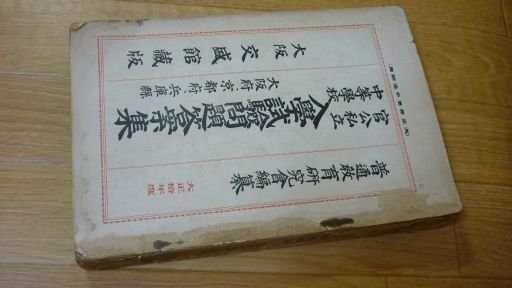 大正拾年度
普通教育研究會編纂
官公私立
中等學校
入學試驗問題答案集
大阪府.京都府.兵庫縣
大阪 交盛館藏版